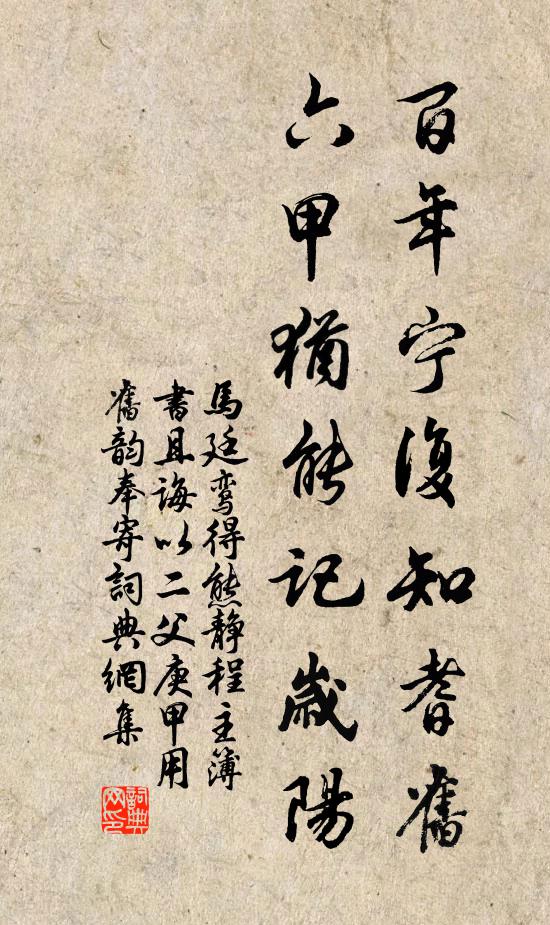 百年宁復知耆舊
六甲猶能記歲陽
馬廷鸞得熊静程主簿
書且誨以二父庚甲用
舊韵奉寄詞典網集
詞典网印